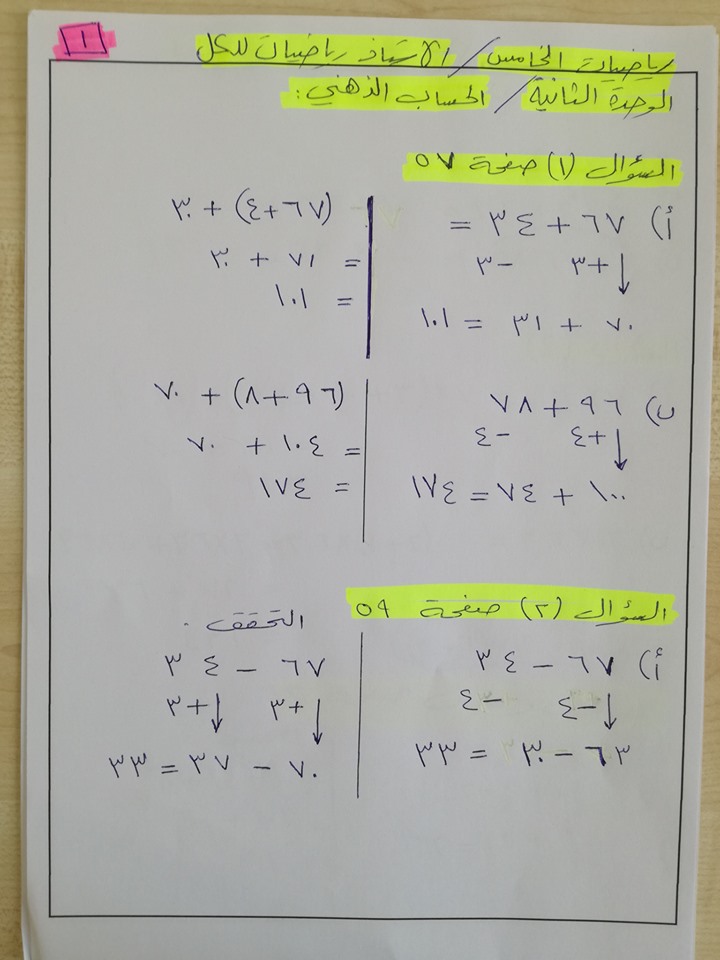 ١
رياضيات الخامس / الأستاذ رياضيات للكل
الوحدة الثانية / الحساب الذهني:
السؤال (١) صفحة ٥٧
أ) ٦٧ + ٣٤ =
+٣ -٣
٧٠ + ٣١ = ١٠١
(٦٧+٤) + ٣٠
= ٧١ + ٣٠
= ١٠١
ب) ٩٦ + ٧٨
+٤ -٤
١٠٠ + ٧٤ = ١٧٤
(٩٦+٨) + ٧٠
= ١٠٤ + ٧٠
= ١٧٤
السؤال (٢) صفحة ٥٩
أ) ٦٧ - ٣٤
-٤ -٤
٦٣ - ٣٠ = ٣٣
التحقق .
٦٧ - ٣٤
+٣ +٣
٧٠ - ٣٧ = ٣٣